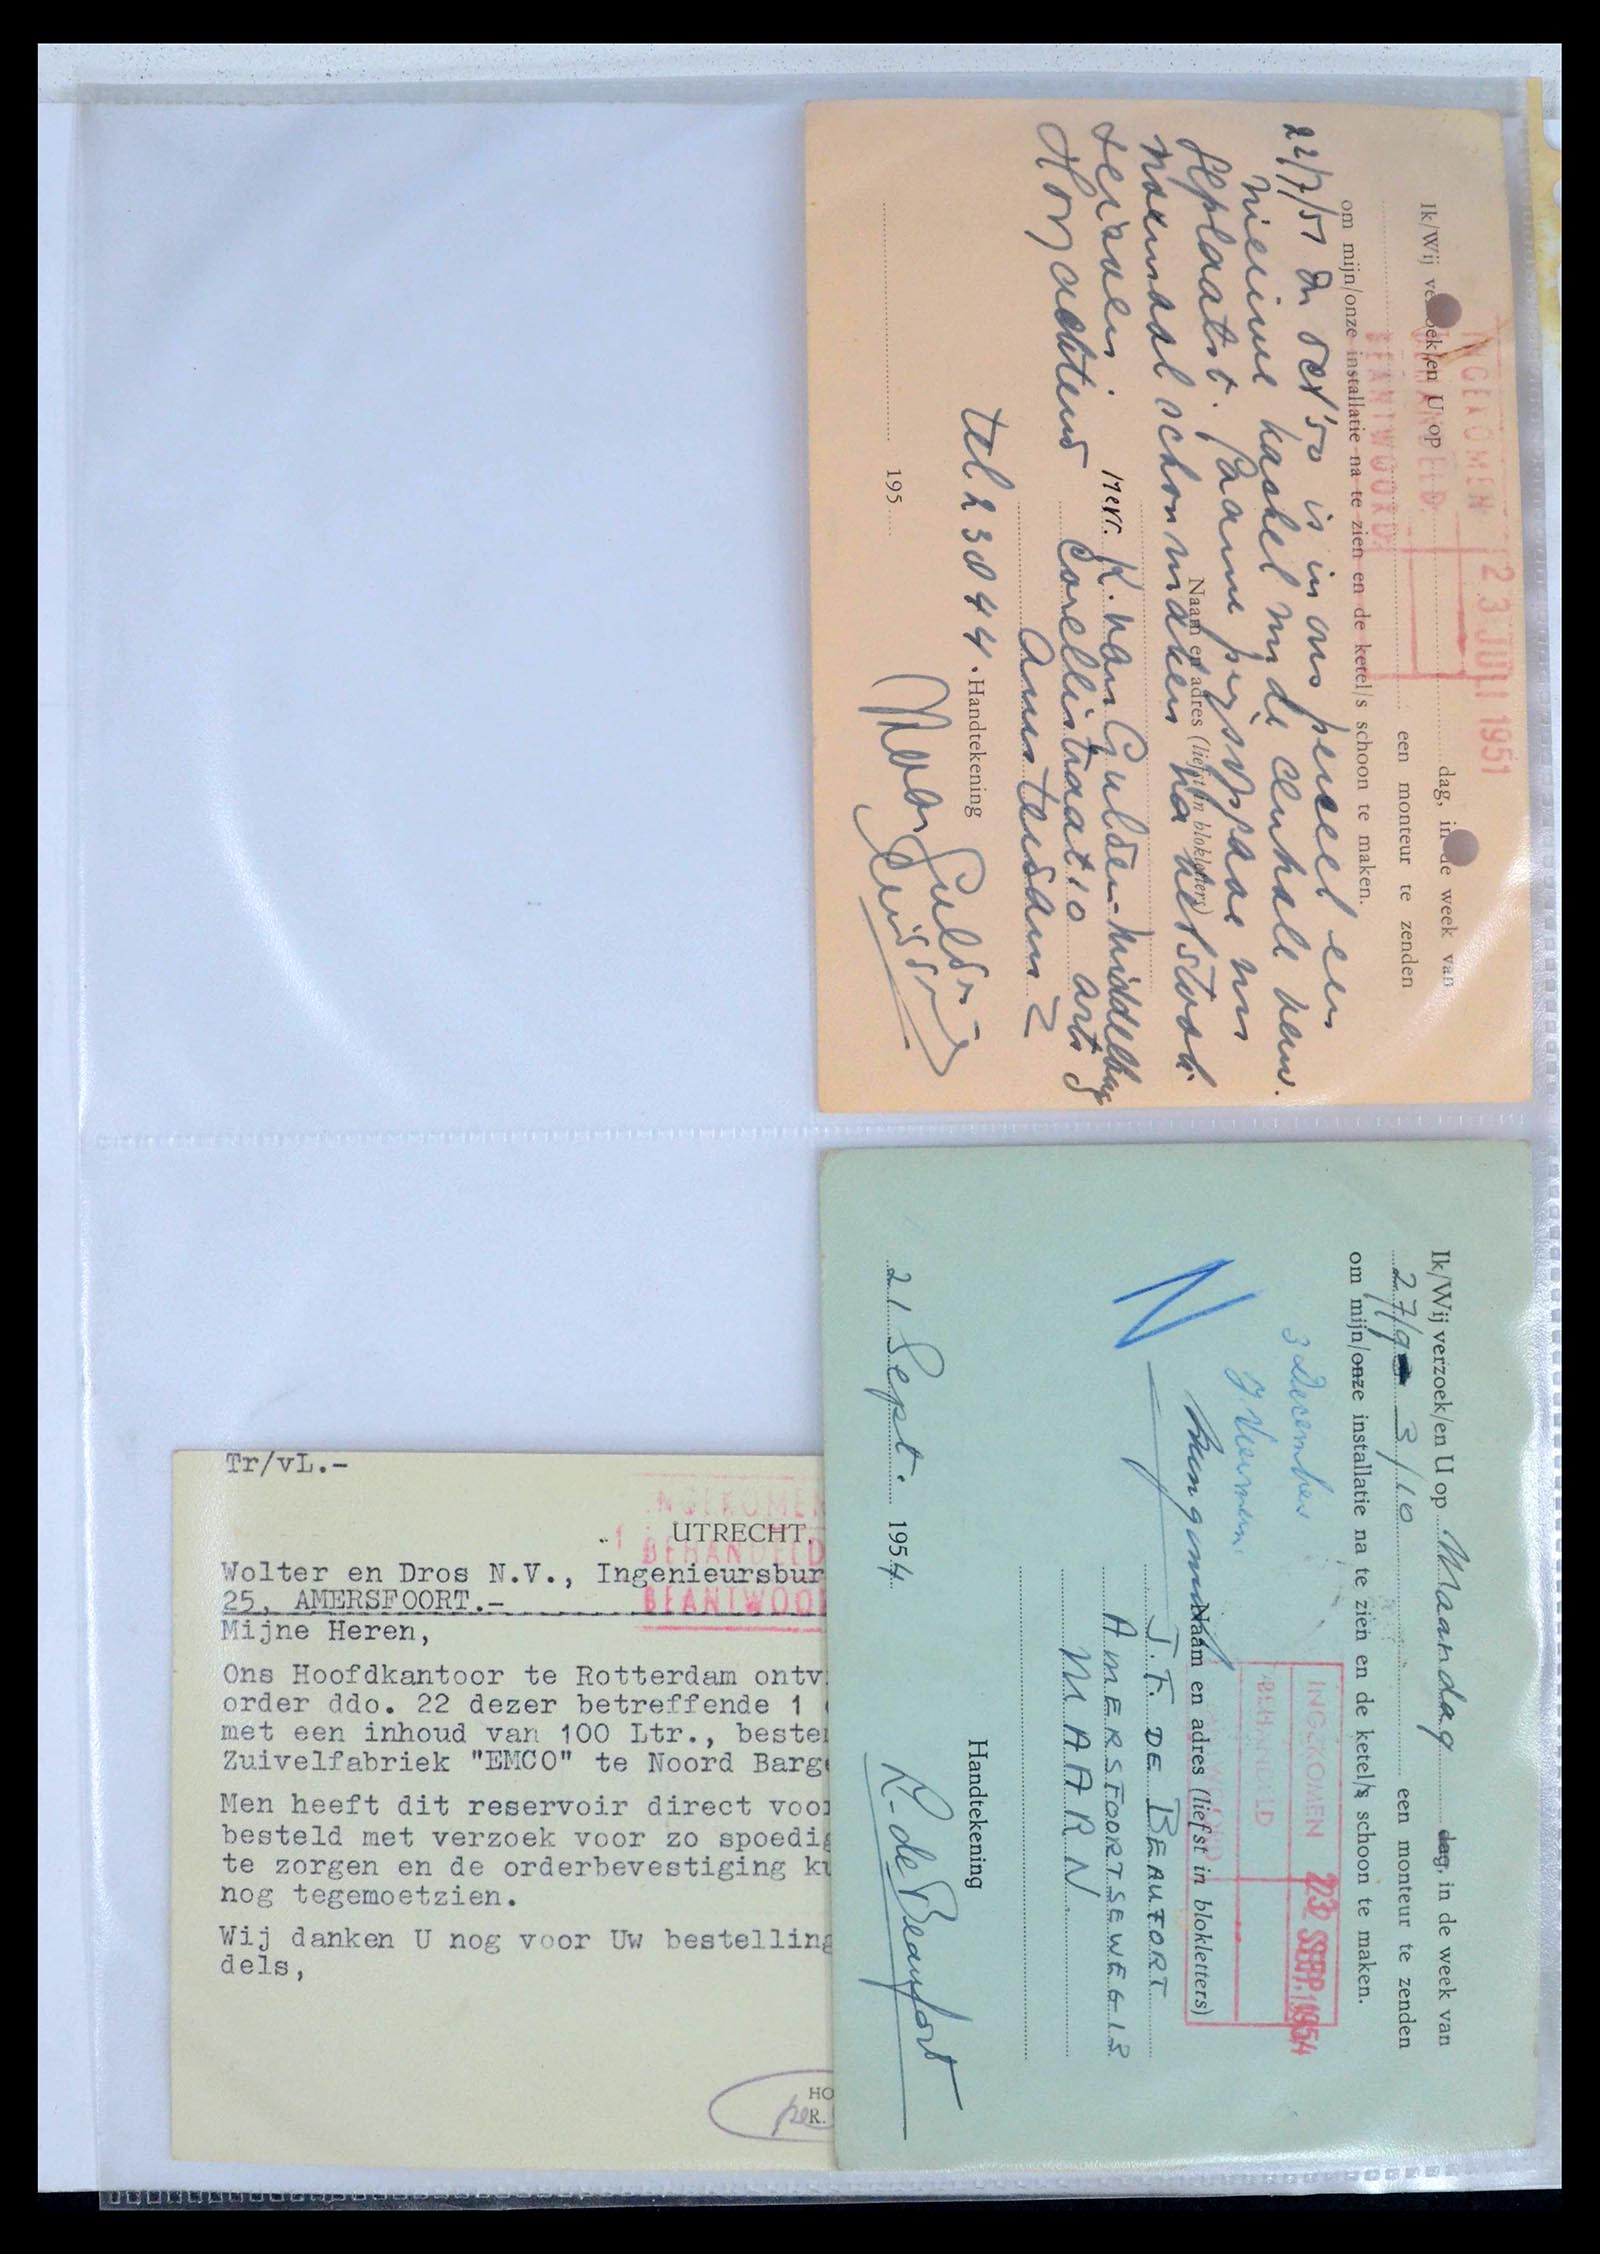 INGEKOMEN 23 JULI 1951
BEHANDELD
BEANTWOORD:
Ik/Wij verzoek/en U op dag, in de week van
een monteur te zenden
om mijn/onze installatie na te zien en de ketel/s schoon te maken.
22/7/51 In oct '50 is in ons perceel een
nieuwe haskel in de centrale verw.
Geplaatst.
nogmaals schoonmaken na het stook
seizoen.
Naam en adres (liefst in blokletters)
Hoogachtend
Mevr. K. van Gulden-Middelburg
Corellistraat 10
Amsterdam Z
tel 23044.
Handtekening
195
Ik/Wij verzoek/en U op Maandag dag, in de week van
27/9 3/10 een monteur te zenden
om mijn/onze installatie na te zien en de ketel/s schoon te maken.
INGEKOMEN 23 SEP. 1954
BEHANDELD
3 December
N
Naam en adres (liefst in blokletters)
J. F. DE BEAUFORT
AMERSFOORTSEWEG 13
MAARN
Handtekening
21 Sept. 1954
K. de Beaufort
Tr/vL.-
INGEKOMEN
UTRECHT,
BEHANDELD
Wolter en Dros N.V., Ingenieursbur
BEANTWOO
25, AMERSFOORT.-
Mijne Heren,
Ons Hoofdkantoor te Rotterdam ontv
order ddo. 22 dezer betreffende 1
met een inhoud van 100 Ltr., beste
Zuivelfabriek "EMCO" te Noord Barge
Men heeft dit reservoir direct voor
besteld met verzoek voor zo spoedig
te zorgen en de orderbevestiging ku
nog tegemoetzien.
Wij danken U nog voor Uw bestelling
dels,
HO
R.